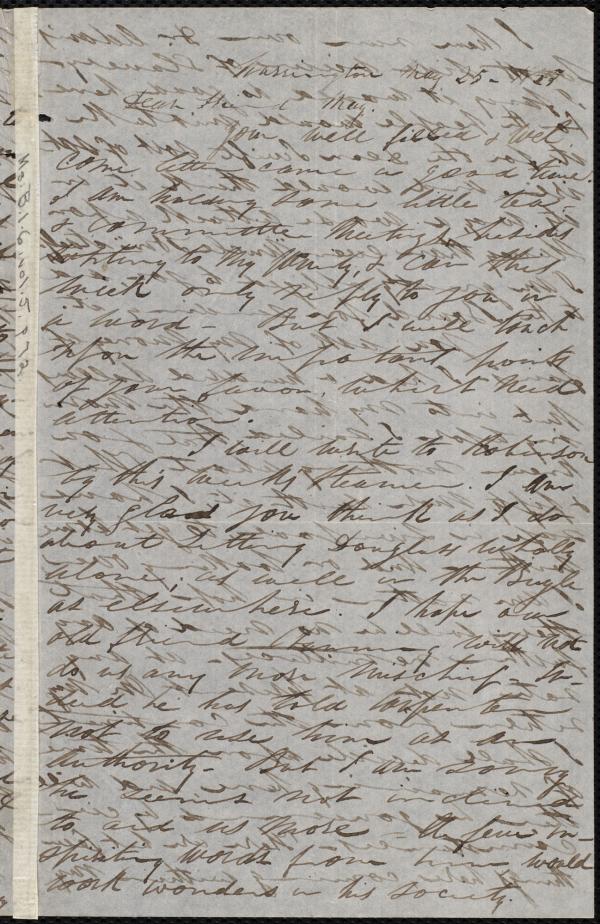 Warrington May 25 -
Dear Friend May.
Your well filled & wel-
come letter came in good time.
I am holding some little tea-
& committee meetings, besides
writing to my family, & can this
week only reply to you in
a word - But I will touch
upon the important points
of your favor, which need
attention.
I will write to Robinson
by this week's steamer. I am
very glad you think as I do
about letting Douglass wholly
alone, as well in the Bugle
as elsewhere. I hope our
old friend will not
do us any more mischief - In-
deed he has told Carpenter
not to use him as an
authority. But I am sorry
he seems not inclined
to aid us more - A few in-
spiriting words from him would
work wonders in his society.
No. B.1.6 Vol. 5. p.